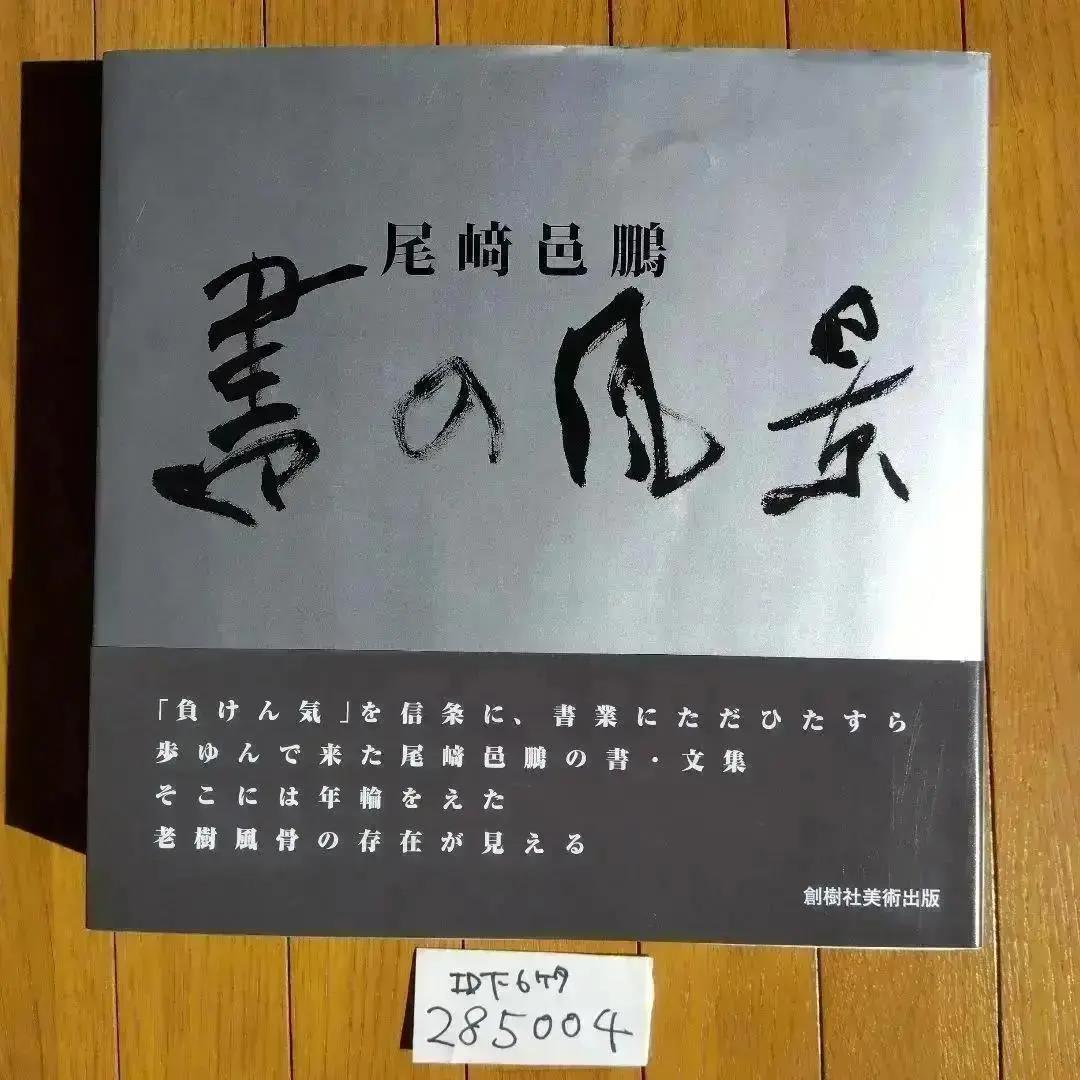 尾﨑邑鵬
書の風景
「負けん気」を信条に、書業にただひたすら
歩ゆんで来た尾﨑邑鵬の書・文集
そこには年輪をえた
老樹風骨の存在が見える
創樹社美術出版
285004